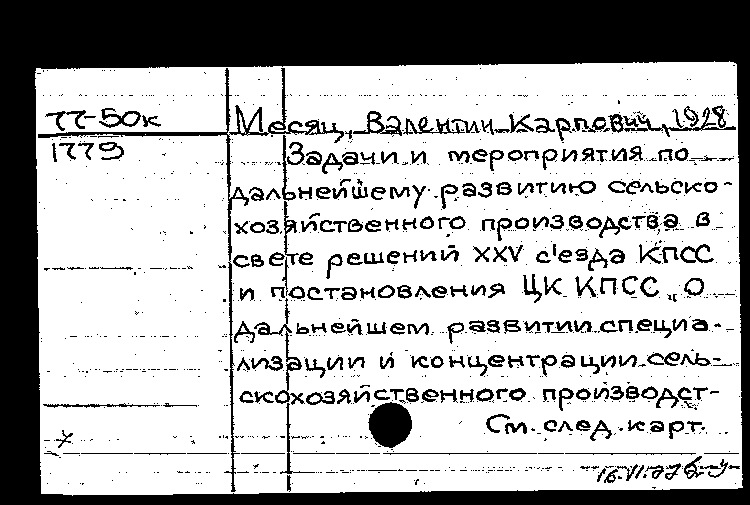 77-50к
Месяц, Валентин Карпович, 1928
1779
Задачи и мероприятия по
дальнейшему развитию сельско-
хозяйственного производства в
свете решений XXV с'езда КПСС
и постановления ЦК КПСС „О
дальнейшем развитии специа-
лизации и концентрации сель-
скохозяйственного производст-
См. след. карт.
16.VI.77